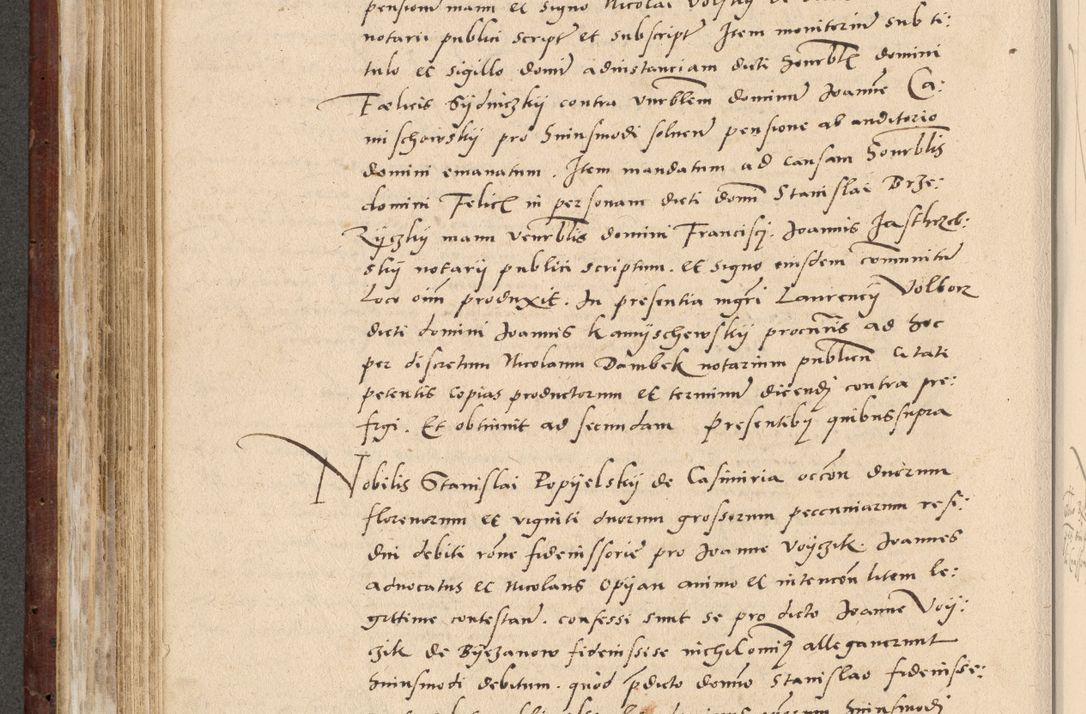 notarii publici script et subscript Item monitorium sub ti:
tulo et sigillo domi ad instantiam dicti honorbl domini
Fœlicis Sijdniczkij contra venrblem dominum Joannem Ca:
mischowskij pro huiusmodi solven pensione ab auditorio
domini emanatum. Item mandatum ad causam honrblis
domini Felic in personam dicti domi Stanislai Brze:
zijczkij manu venrblis domini Francisci. Joannis Jastrzeb:
skij notarij publici scriptum. et signo eiusdem communitu
loco oim produxit. In presentia mgri Laurencij Volbor
dicti domini Joannis Kamijschewskij procuris ad hoc
per discretum Nicolaum Dambek notarium publicu citati
petentis copias productorum et terminum dicendj contra pre:
frgi. Et obtinuit ad secundam presentibq quibus supra
Nobilis Stanislai Popijelskij de Casimiria occon duorum
florenorum et viginti duorum grossorum peccuniarum resi:
dui debiti rone fideiussorie pro Joanne Voijczik. Joannes
advocatus et Nicolaus Opijan animo et intencon litem le:
gittime contestan. confessi sunt se pro dicto Joanne Voij:
czik de Bijezanow fideiussisse nichilominq allegaverunt
huiusmodi debitum. quod pdicto domno Stanislao fideiusse: